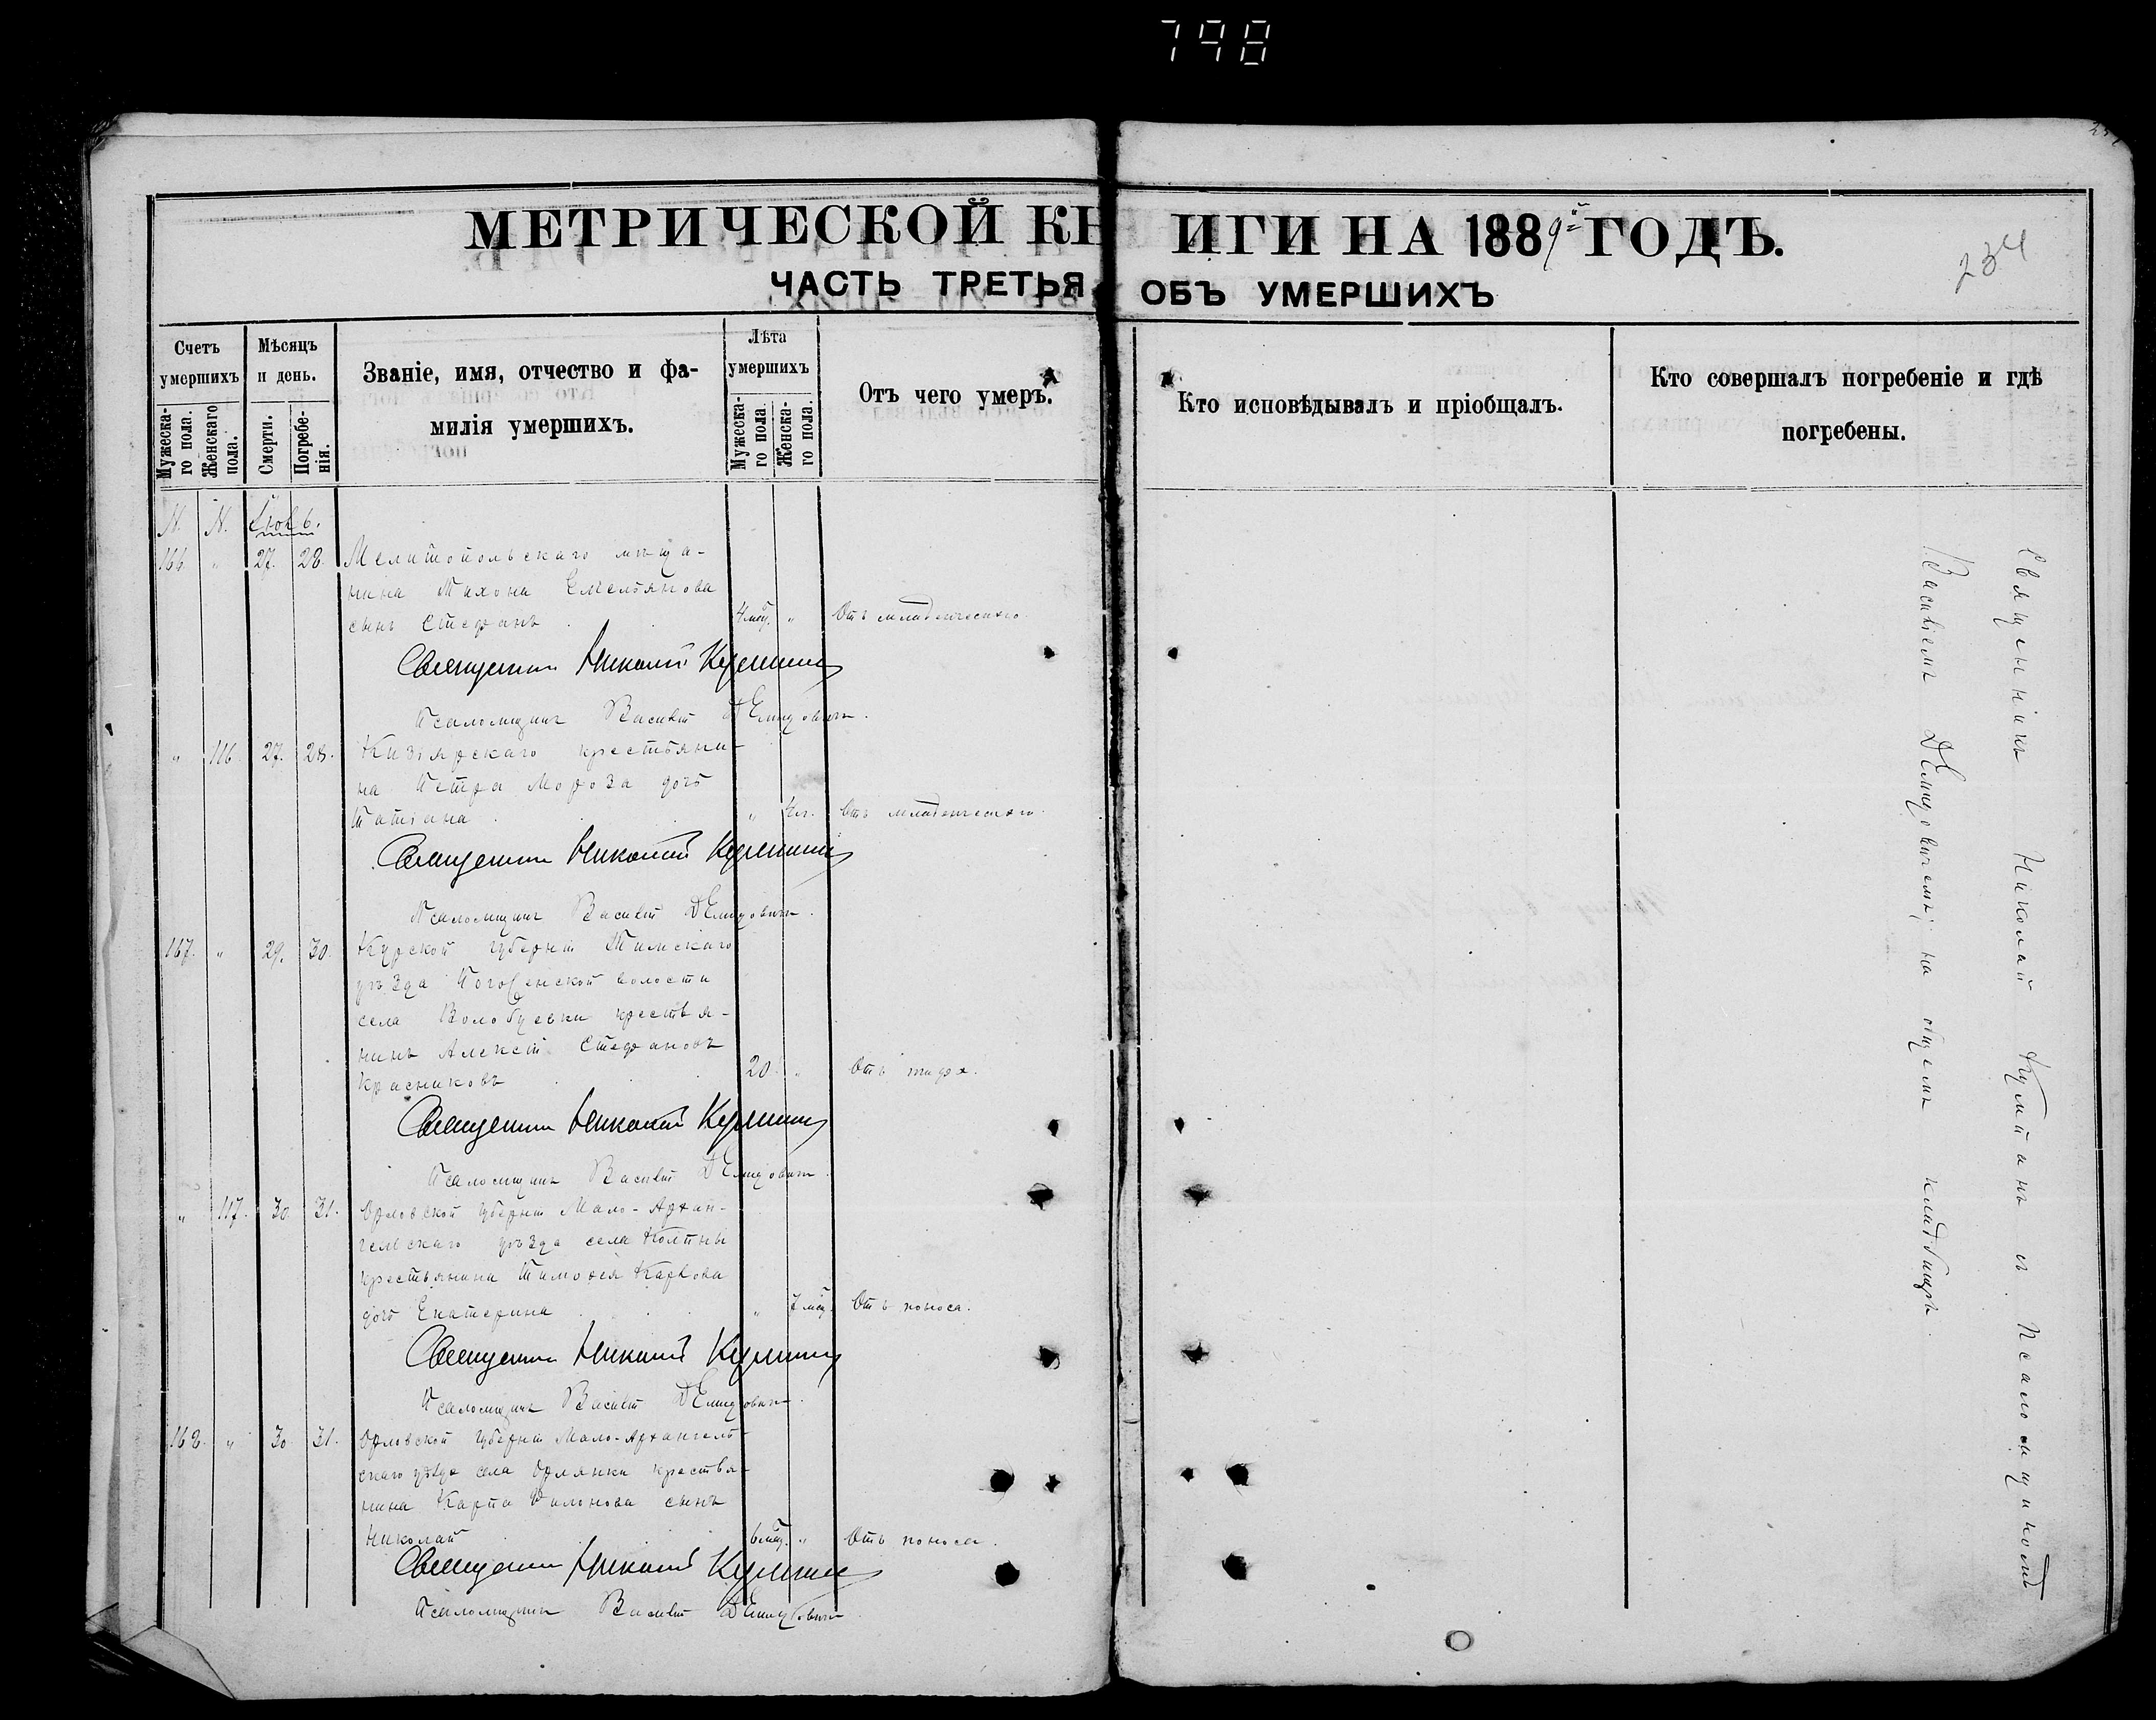 798
МЕТРИЧЕСКОЙ КНИГИ НА 1889й ГОДЪ.
234
ЧАСТЬ ТРЕТЬЯ ОБЪ УМЕРШИХЪ
Счетъ умершихъ
Мужеска-го пола.
Женскаго пола.
Мѣсяцъ и день.
Смерти.
Погребе-нія.
Званіе, имя, отчество и фа-
милія умершихъ.
Лѣта умершихъ
Мужеска-го пола.
Женска-го пола.
Отъ чего умеръ.
Кто исповѣдывалъ и пріобщалъ.
Кто совершалъ погребеніе и гдѣ
погребены.
N. N. Іюль.
166. " 27. 28. Мелитопольскаго мѣща-
нина Тихона Емельянова
сынъ Стефанъ 4 мѣс. " Отъ младенческаго.
Священникъ Николай
Псаломщикъ Василій Демидовичъ.
" 116. 27. 28. Кизіярскаго крестьяни-
на Петра Мороза дочь
Татіана " Отъ младенческаго.
Священникъ Николай
Псаломщикъ Василій Демидовичъ.
167. " 29. 30. Курской губерніи Тимскаго
уѣзда волости
села Волобуевки крестья-
нинъ Алексѣй Стефановъ
Красниковъ 20. " Отъ
Священникъ Николай
Псаломщикъ Василій Демидовичъ.
" 117. 30. 31. Орловской губерніи Мало-Архан-
гельскаго уѣзда села Колпны
крестьянина Тимоѳея Карпова
дочь Екатерина " 7 мѣс. Отъ поноса.
Священникъ Николай
Псаломщикъ Василій Демидовичъ.
168. " 30. 31. Орловской губерніи Мало-Архангель-
скаго уѣзда села Орлянки крестья-
нина Карпа сынъ
Николай 6 мѣс. " Отъ поноса.
Священникъ Николай
Псаломщикъ Василій Демидовичъ
Священникъ Николай съ Псаломщикомъ
Василіемъ Демидовичемъ; на общемъ кладбищѣ.